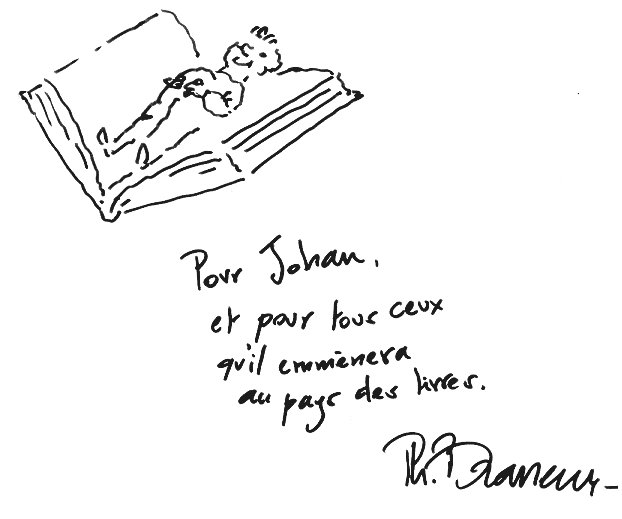 Pour Johan,
et pour tous ceux
qu'il emmènera
au pays des livres.
Ph.